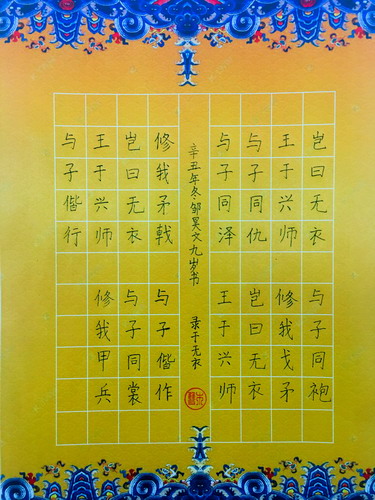 岂曰无衣 与子同袍
王于兴师 修我戈矛
与子同仇 岂曰无衣
与子同泽 王于兴师
修我矛戟 与子偕作
岂曰无衣 与子同裳
王于兴师 修我甲兵
与子偕行
辛丑年冬邹昊文九岁书 录于无衣